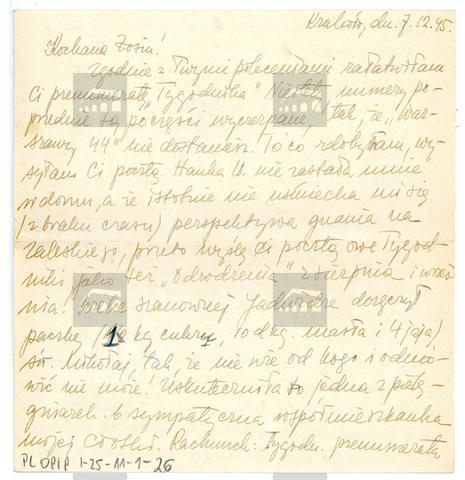 Kraków, dn. 7.12.45.
Kochana Zosiu!
Zgodnie z Twymi poleceniami załatwiłam
Ci prenumeratę „Tygodnika" Niestety numery po-
przednie są po części wyczerpane, tak, że „War-
szawy 44" nie dostaniesz. To co zdobyłam, wy-
syłam Ci pocztą. Hanka U. nie zastała mnie
w domu, a że istotnie nie uśmiecha mi się
(z braku czasu) perspektywa gnania na
Zaleskiego, przeto wyślę Ci pocztą owe Tygod-
niki jako też „Odrodzenia" z sierpnia i wrześ-
nia. szanownej Jadwidze doręczył
paczkę (1 kg cukru, 10 dkg. masła i 4 jaja)
św. Mikołaj, tak, że nie wie od kogo i odmó-
wić nie może! Uskuteczniła to jedna z pielę-
gniarek. sympatyczna współmieszkanka
mojej Rachunek: Tygodn. prenumerata
PL OPIP 1-25-11-1-26